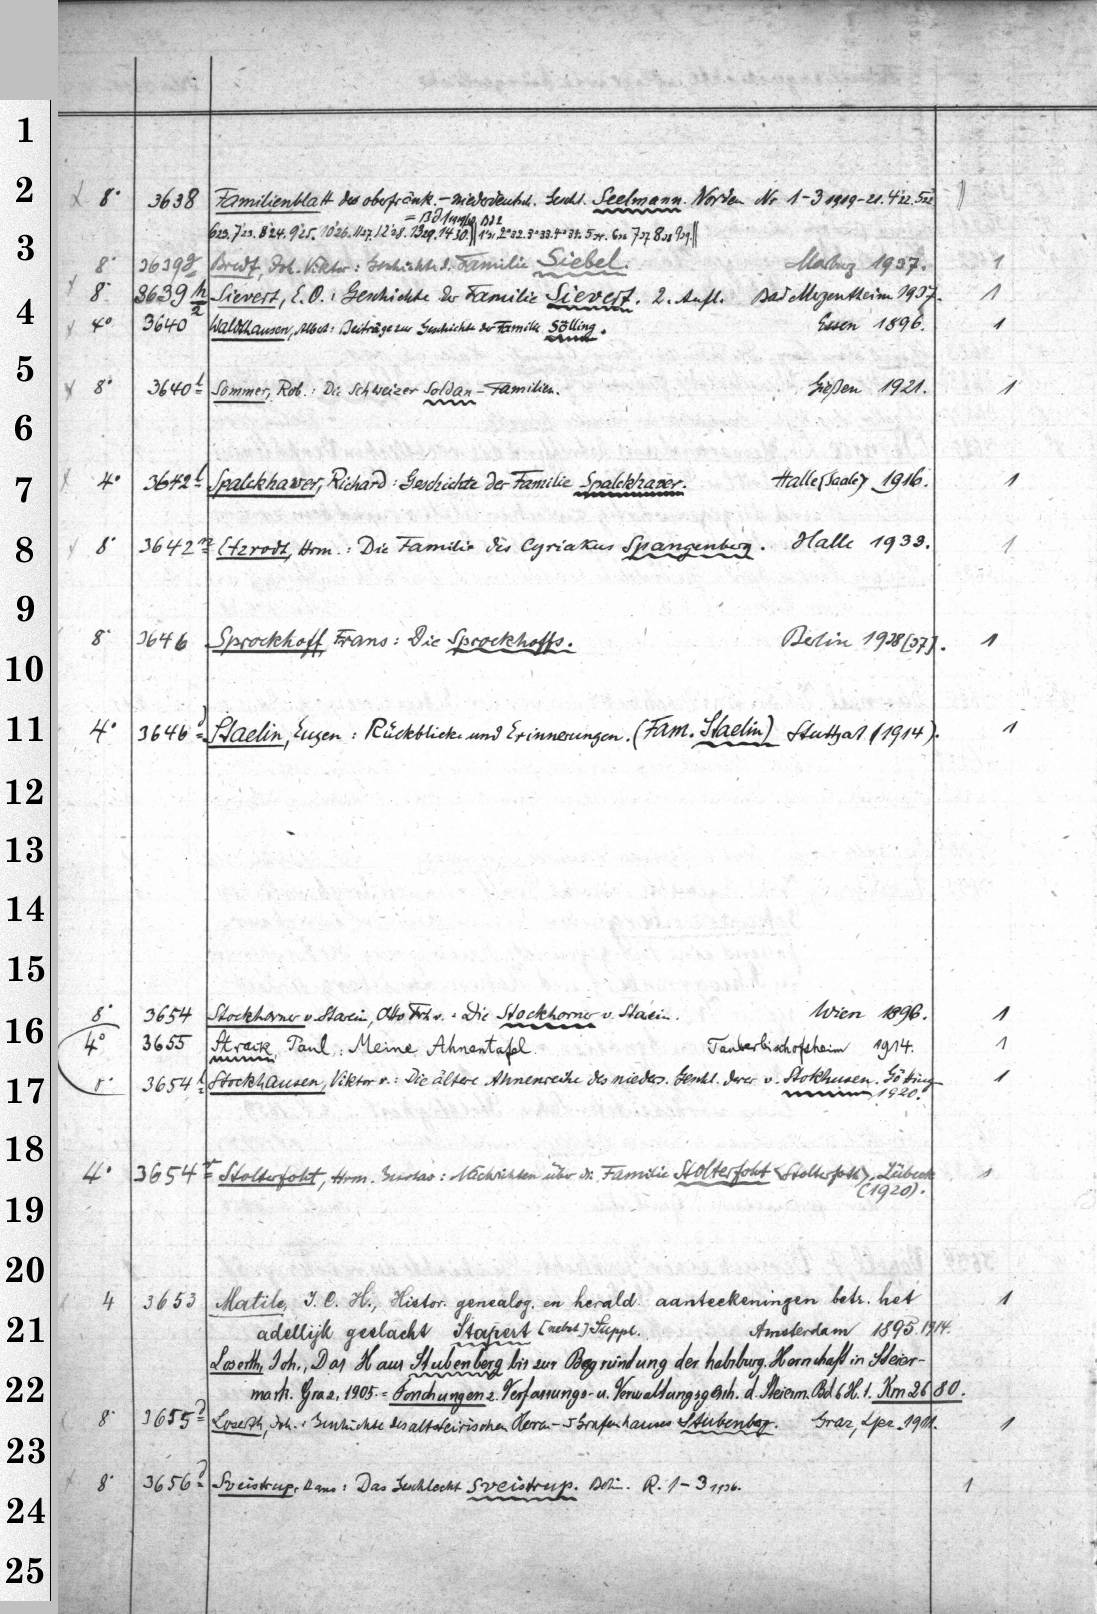 1
2
8° 3638 Familienblatt des oberfränk.-niederdeutsch. Geschl. Seelmann. Norden Nr 1-3 1919-21. 4'22. 5'22
= Bd 1 Bd 2
3
6'23. 7'23. 8'24. 9'25. 10'26. 11'27. 12'28. 13'29. 14'30.
8° 3639g Bredt, Joh. Viktor: Geschichte d. Familie Siebel. Marburg 1937. 1
8° 3639 h/2 Sievert, E. O.: Geschichte der Familie Sievert. 2. Aufl. Bad Mergentheim 1937. 1
4
4° 3640 Waldthausen, Albert: Beiträge zur Geschichte der Familie Sölling. Essen 1896. 1
5
8° 3640 Sommer, Rob.: Die Schweizer Soldan-Familien. Gießen 1921. 1
6
7
4° 3642 Spalckhawer, Richard: Geschichte der Familie Spalckhaver. Halle (Saale) 1916. 1
8
8° 3642 m Etzrodt, Hrm.: Die Familie des Cyriakus Spangenberg. Halle 1933. 1
9
8° 3646 Sprockhoff, Frans: Die Sprockhoffs. Berlin 1938 [37]. 1
10
11
4° 3646 Staelin, Eugen: Rückblicke und Erinnerungen. (Fam. Staelin) Stuttgart (1914). 1
12
13
14
15
8° 3654 Stockhorner v. Starein, Otto Frh. v.: Die Stockhorner v. Starein. Wien 1896. 1
16
4° 3655 Straik, Paul: Meine Ahnentafel. Tauberbischofsheim 1914. 1
17
8° 3654 Stockhausen, Viktor v.: Die ältere Ahnenreihe des nieders. Geschl. derer v. Stokhusen. Götting 1
1920.
18
4° 3654 Stolterfoht, Hrm. Gustav: Nachrichten über die Familie Stolterfoht <Stolterfoth>. Lübeck 1
(1920).
19
20
4 3653 Matile, J. C. H., Histor. genealog. en herald. aanteekeningen betr. het 1
21
adellijk geslacht Stapert [nebst] Suppl. Amsterdam 1895. 1914.
Loserth, Joh., Das Haus Stubenberg bis zur Begründung der habsburg. Herrschaft in Steier-
22
mark. Graz, 1905. = Forschungen z. Verfassungs- u. Verwaltungsgesch. d. Steierm. Bd 6 H. 1. Km 2680.
8° 3655 Loserth, Joh.: Geschichte des altsteirischen Herren- u. Grafenhauses Stubenberg. Graz, Lpz. 1911. 1
23
8° 3656 Sveistrup, Hans: Das Geschlecht Sveistrup. Berlin. R. 1-3 1936. 1
24
25